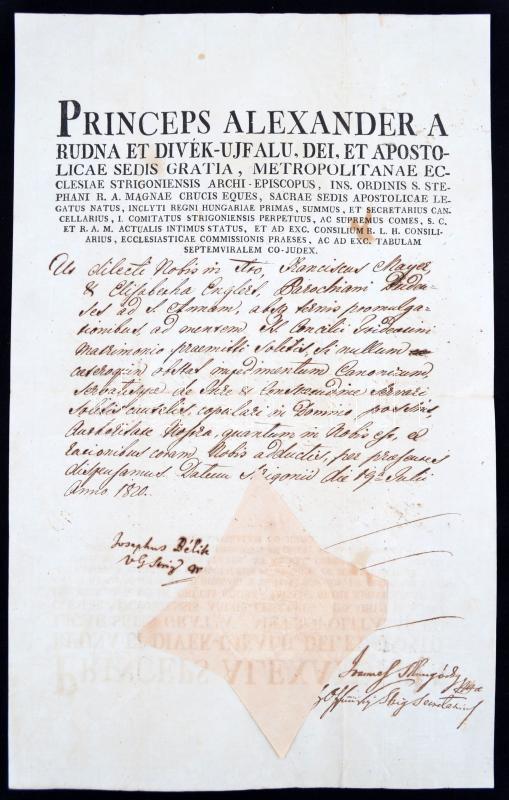 PRINCEPS ALEXANDER A
RUDNA ET DIVÉK-UJFALU, DEI, ET APOSTO-
LICAE SEDIS GRATIA, METROPOLITANAE EC-
CLESIAE STRIGONIENSIS ARCHI-EPISCOPUS, INS. ORDINIS S. STE-
PHANI R. A. MAGNAE CRUCIS EQUES, SACRAE SEDIS APOSTOLICAE LE-
GATUS NATUS, INCLYTI REGNI HUNGARIAE PRIMAS, SUMMUS, ET SECRETARIUS CAN-
CELLARIUS, I. COMITATUS STRIGONIENSIS PERPETUUS, AC SUPREMUS COMES, S. C.
ET R. A. M. ACTUALIS INTIMUS STATUS, ET AD EXC. CONSILIUM R. L. H. CONSILI-
ARIUS, ECCLESIASTICAE COMMISSIONIS PRAESES, AC AD EXC. TABULAM
SEPTEMVIRALEM CO-JUDEX.
Ut dilecti Nobis in Xto, Franciscus Mayer,
& Elisabetha Englert, Parochiani Buden-
ses ad S. Annam, absq ternis promulga-
tionibus ad mentem St Concilii Tridentini
Matrimonio praemitti solitis, si nullum
caeteroquin obstet impedimentum Canonicum,
servatisque de Jure & Consvetudine servari
solitis cautelis, copulari in Domino possint,
Authoritate Nostra, quantum in Nobis est, e
rationibus coram Nobis adductis, per praesentes
dispensamus. Datum Strigonii die 19a Julii
Anno 1820.
Josephus Bélik
V G Strig
Joannes
Strig Secretarius